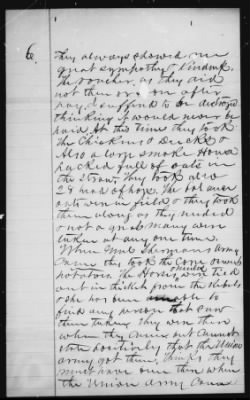 6
They always showed me
great sympathy & kindness
The voucher as they did
not then or soon after
pay I suffered to be destroyed
thinking it would never be
paid At this time they took
the Chickens & Ducks &
Also a large smoke House
packed full of oats in
the straw They took also
24 head of hogs. The balance
oats were in field & they took
them along as they needed
& not a great many were
taken at any one time.
When Genl Shermans Army
Came they took the Corn
potatoes The Horses were tied
out in thicket from the Rebels
& she has been unable to
find any person that saw
them taken They were there
when they Came but Cannot
state positively that the Union
army got them. Thinks they
must have done so then when
the Union Army Came